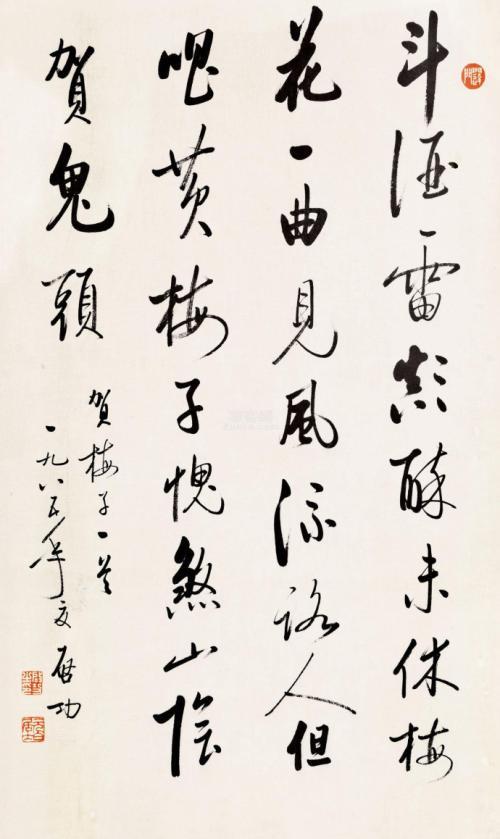 斗酒雷顛醉未休梅
花一曲見風流路人但
唱黄梅子愧煞山陰
賀鬼頭
賀梅子一首
一九八五年夏 启功